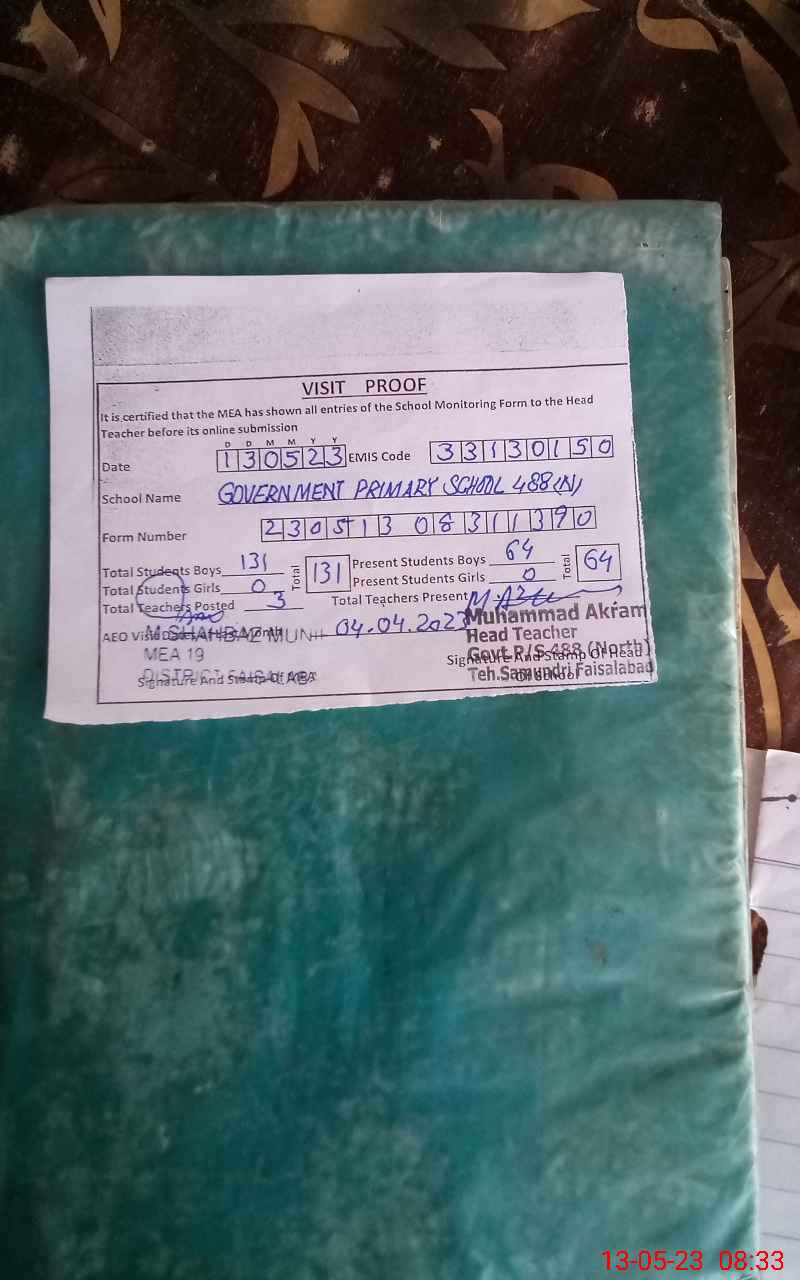 VISIT PROOF
It is certified that the MEA has shown all entries of the School Monitoring Form to the Head
Teacher before its online submission
D D M M Y Y
Date 130523 EMIS Code 33130150
School Name GOVERNMENT PRIMARY SCHOOL 488(N)
Form Number 230513 08311390
Total Students Boys 131 Total 131 Present Students Boys 64 Total 64
Total Students Girls 0 Present Students Girls 0
Total Teachers Posted 3 Total Teachers Present
AEO 04.04.2023
M.SHAHBAZ
MEA 19
DISTRICT
Signature And Stamp Of MEA
Muhammad Akram
Head Teacher
Govt.P/S 488 (North)
Teh.Samundri Faisalabad
Signature And Stamp Of Head
Of School
13-05-23 08:33